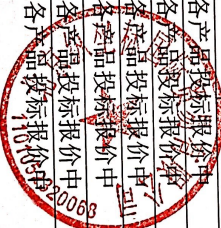 各产品投标报价中
各产品投标报价中
各产品投标报价中
各产品投标报价中
各产品投标报价中